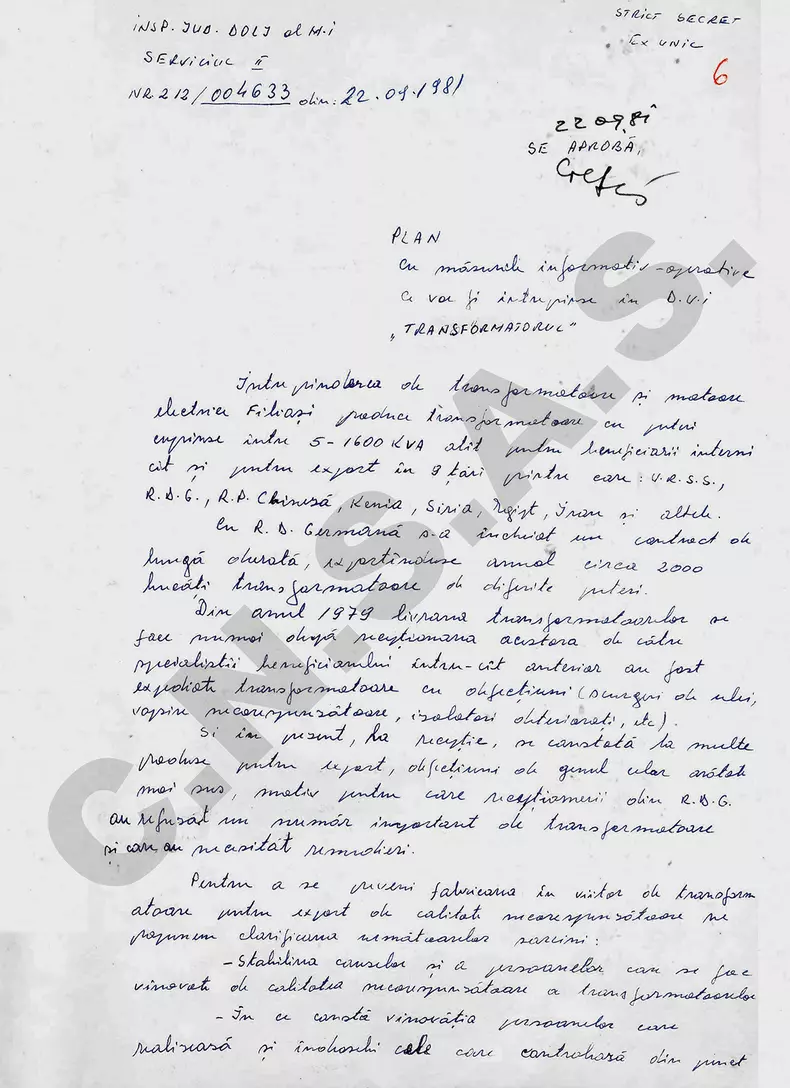 INSP. JUD. DOLJ al M.I
SERVICIUL II
NR 212/004633 din: 22.09.1981
STRICT SECRET
EX UNIC
6
22 09.81
SE APROBĂ,
PLAN
cu măsurile informativ-operative
ce vor fi întreprinse în D.U.i
„TRANSFORMATORUL”
Întreprinderea de transformatoare și motoare
electrice Filiași produce transformatoare cu puteri
cuprinse între 5-1600 KVA atît pentru beneficiarii interni
cît și pentru export în 9 țări printre care: U.R.S.S.,
R.D.G., R.P. Chineză, Kenia, Siria, Egipt, Iran și altele.
Cu R. D. Germană s-a încheiat un contract de
lungă durată, exportîndu-se anual circa 2000
bucăți transformatoare de diferite puteri.
Din anul 1979 livrarea transformatoarelor se
face numai după recepționarea acestora de către
specialistii beneficiarului întru-cît anterior au fost
expediate transformatoare cu obiecțiuni (scurgeri de ulei,
vopsire necorespunzătoare, izolatori deteriorați, etc).
Si în prezent, la recepție, se constată la multe
produse pentru export, obiecțiuni de genul celor arătate
mai sus, motiv pentru care recepționerii din R.D.G.
au refuzat un număr important de transformatoare
și care au necesitat remedieri.
Pentru a se preveni fabricarea în viitor de transform
atoare pentru export de calitate necorespunzătoare ne
propunem clarificarea următoarelor sarcini:
- Stabilirea cauzelor și a persoanelor care se fac
vinovate de calitatea necorespunzătoare a transformatoarelor
- În ce constă vinovăția persoanelor care
realizează și îndeosebi cele care controlează din punct
C.N.S.A.S.